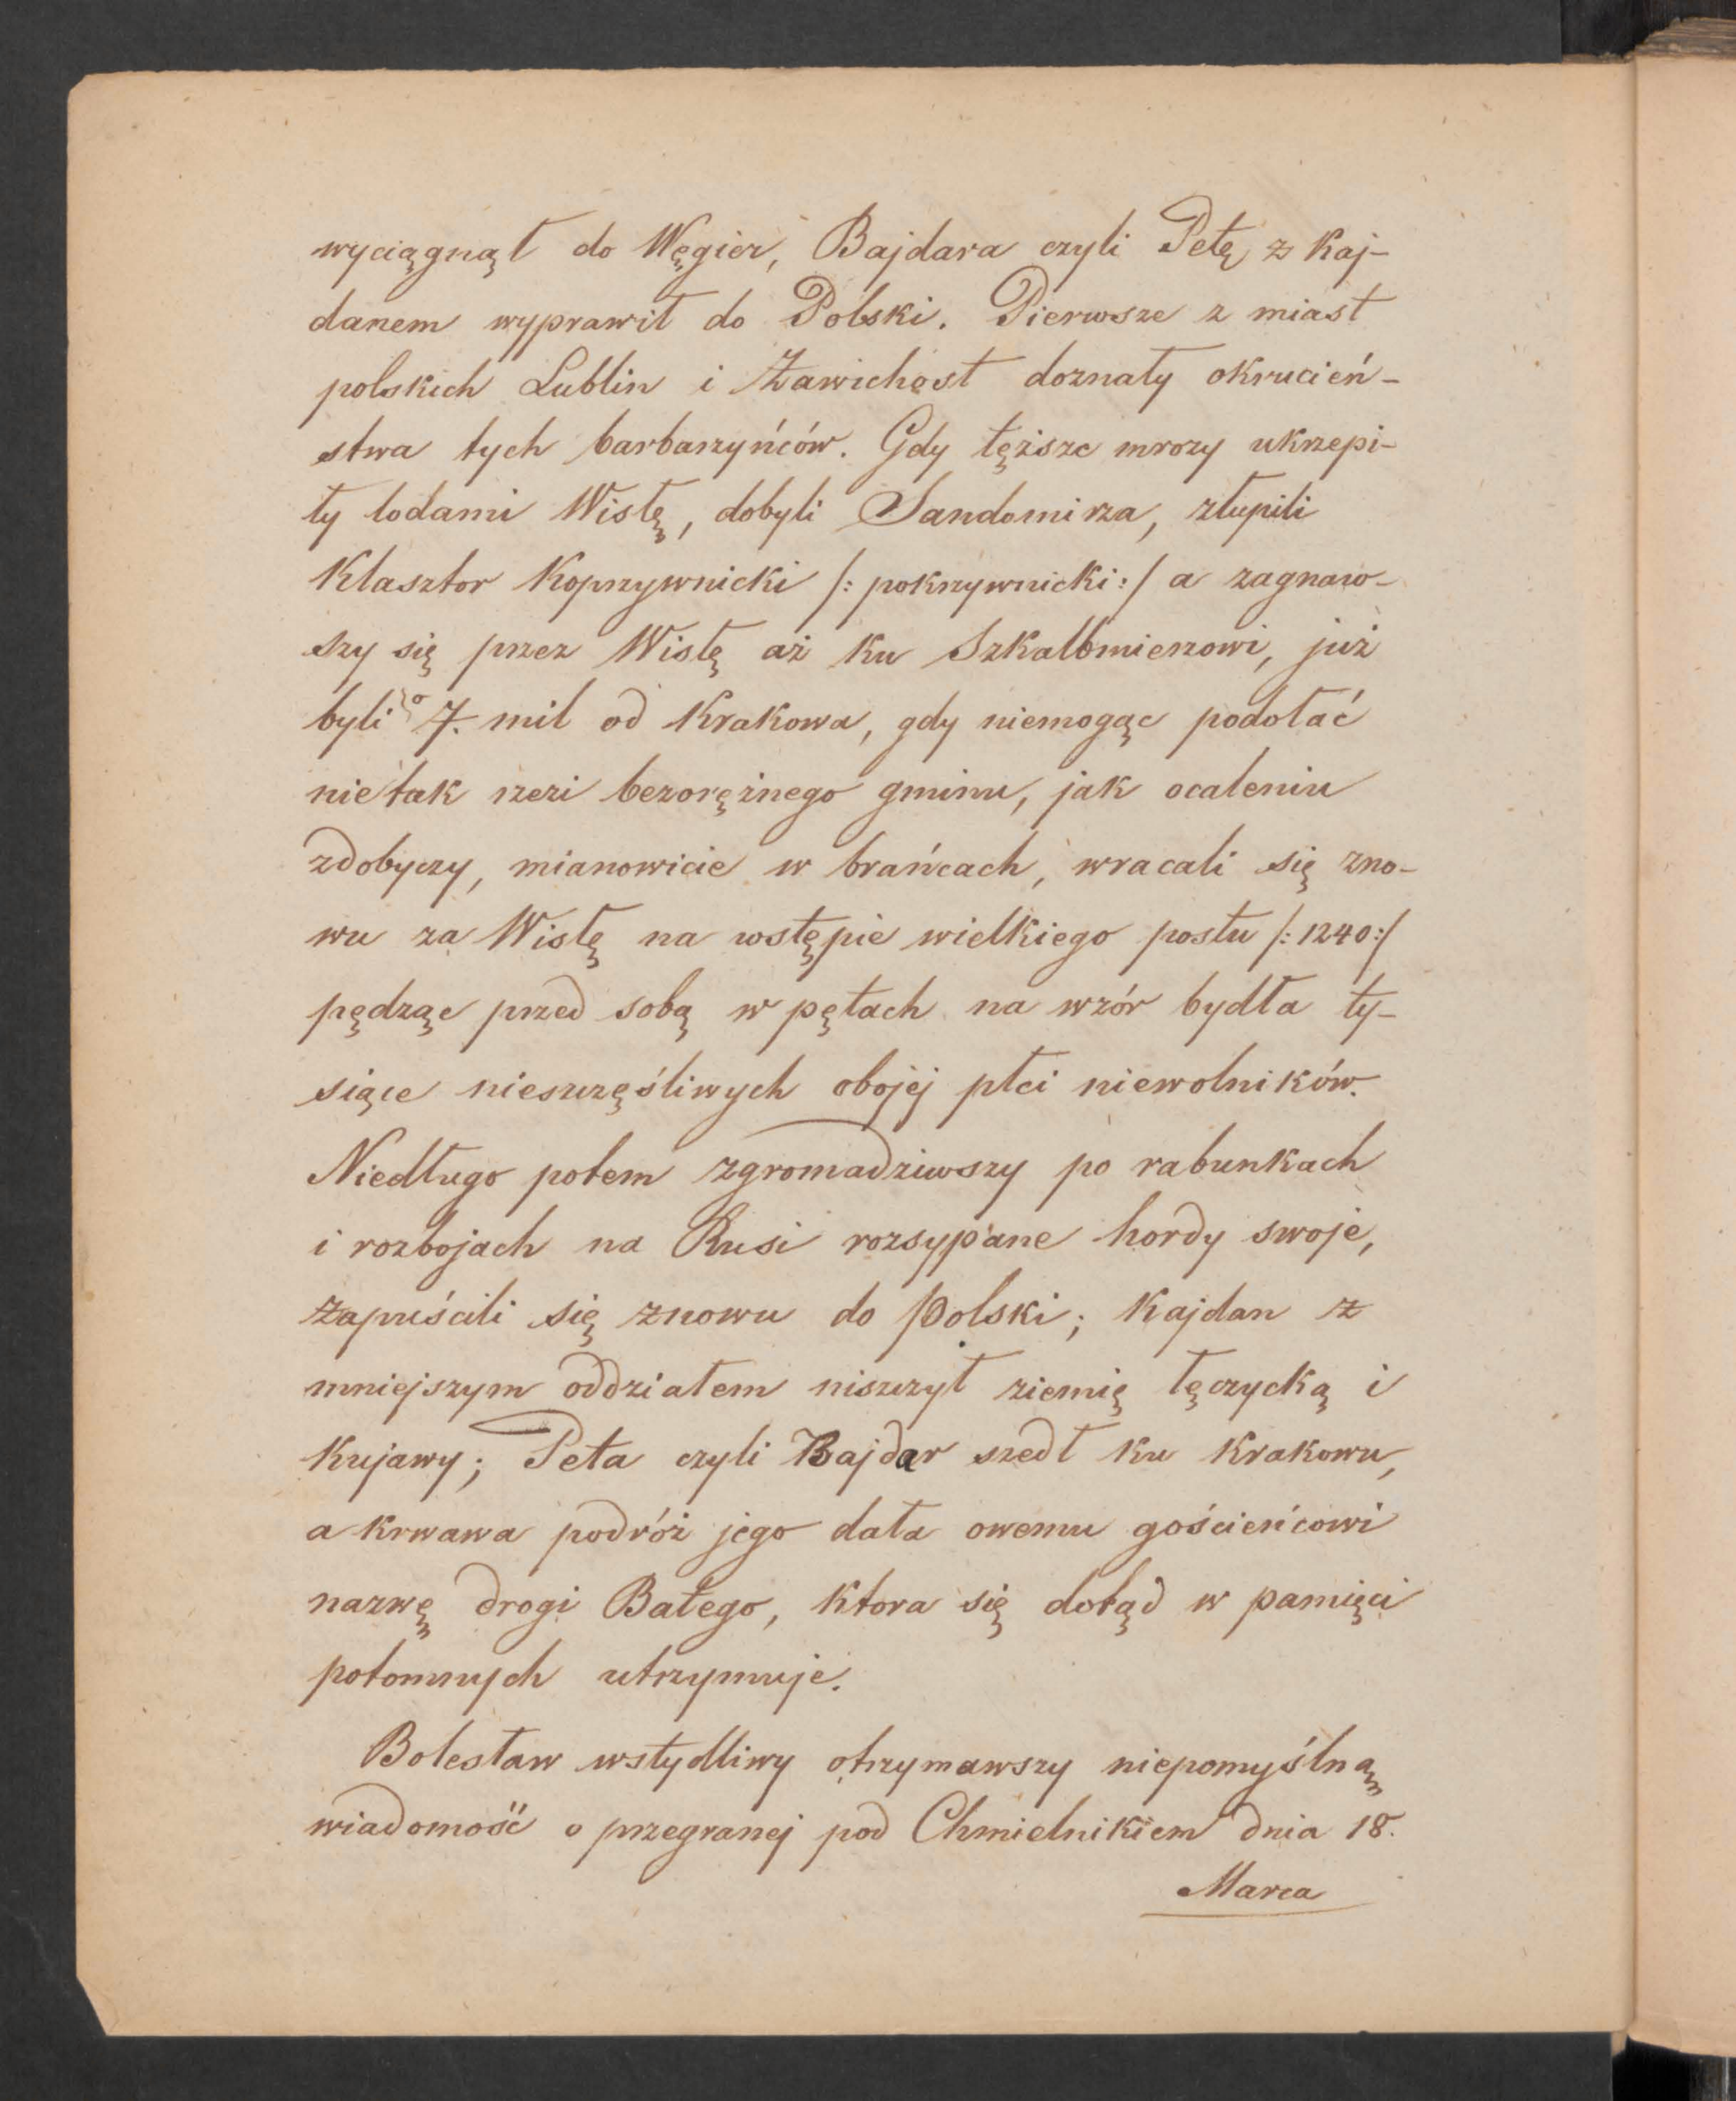 wyciągnął do Węgier, Bajdara czyli Petę z Kaj-
danem wyprawił do Polski. Pierwsze z miast
polskich Lublin i Zawichost doznały okrucień-
stwa tych barbarzyńców. Gdy tęższe mrozy ukrzepi-
ły lodami Wisłę, dobyli Sandomirza, złupili
Klasztor Koprzywnicki /: pokrzywnicki :/ a zagnaw-
szy się przez Wisłę aż ku Szkalbmierzowi, już
byli o 7. mil od Krakowa, gdy niemogąc podołać
nietak rzezi bezorężnego gminu, jak ocaleniu
zdobyczy, mianowicie w brańcach, wracali się zno-
wu za Wisłę na wstępie wielkiego postu /: 1240 :/
pędząc przed sobą w pętach na wzór bydła ty-
siące nieszczęśliwych obojej płci niewolników.
Niedługo potem zgromadziwszy po rabunkach
i rozbojach na Rusi rozsypane hordy swoje,
zapuścili się znowu do Polski; Kajdan z
mniejszym oddziałem niszczył ziemię łęczycką i
Kujawy; Peta czyli Bajdar szedł ku Krakowu,
a krwawa podróż jego dała owemu gościeńcowi
nazwę drogi Batego, ktora się dotąd w pamięci
potomnych utrzymuje.
Bolesław wstydliwy otrzymawszy niepomyślną
wiadomość o przegranej pod Chmielnikiem dnia 18.
Marca